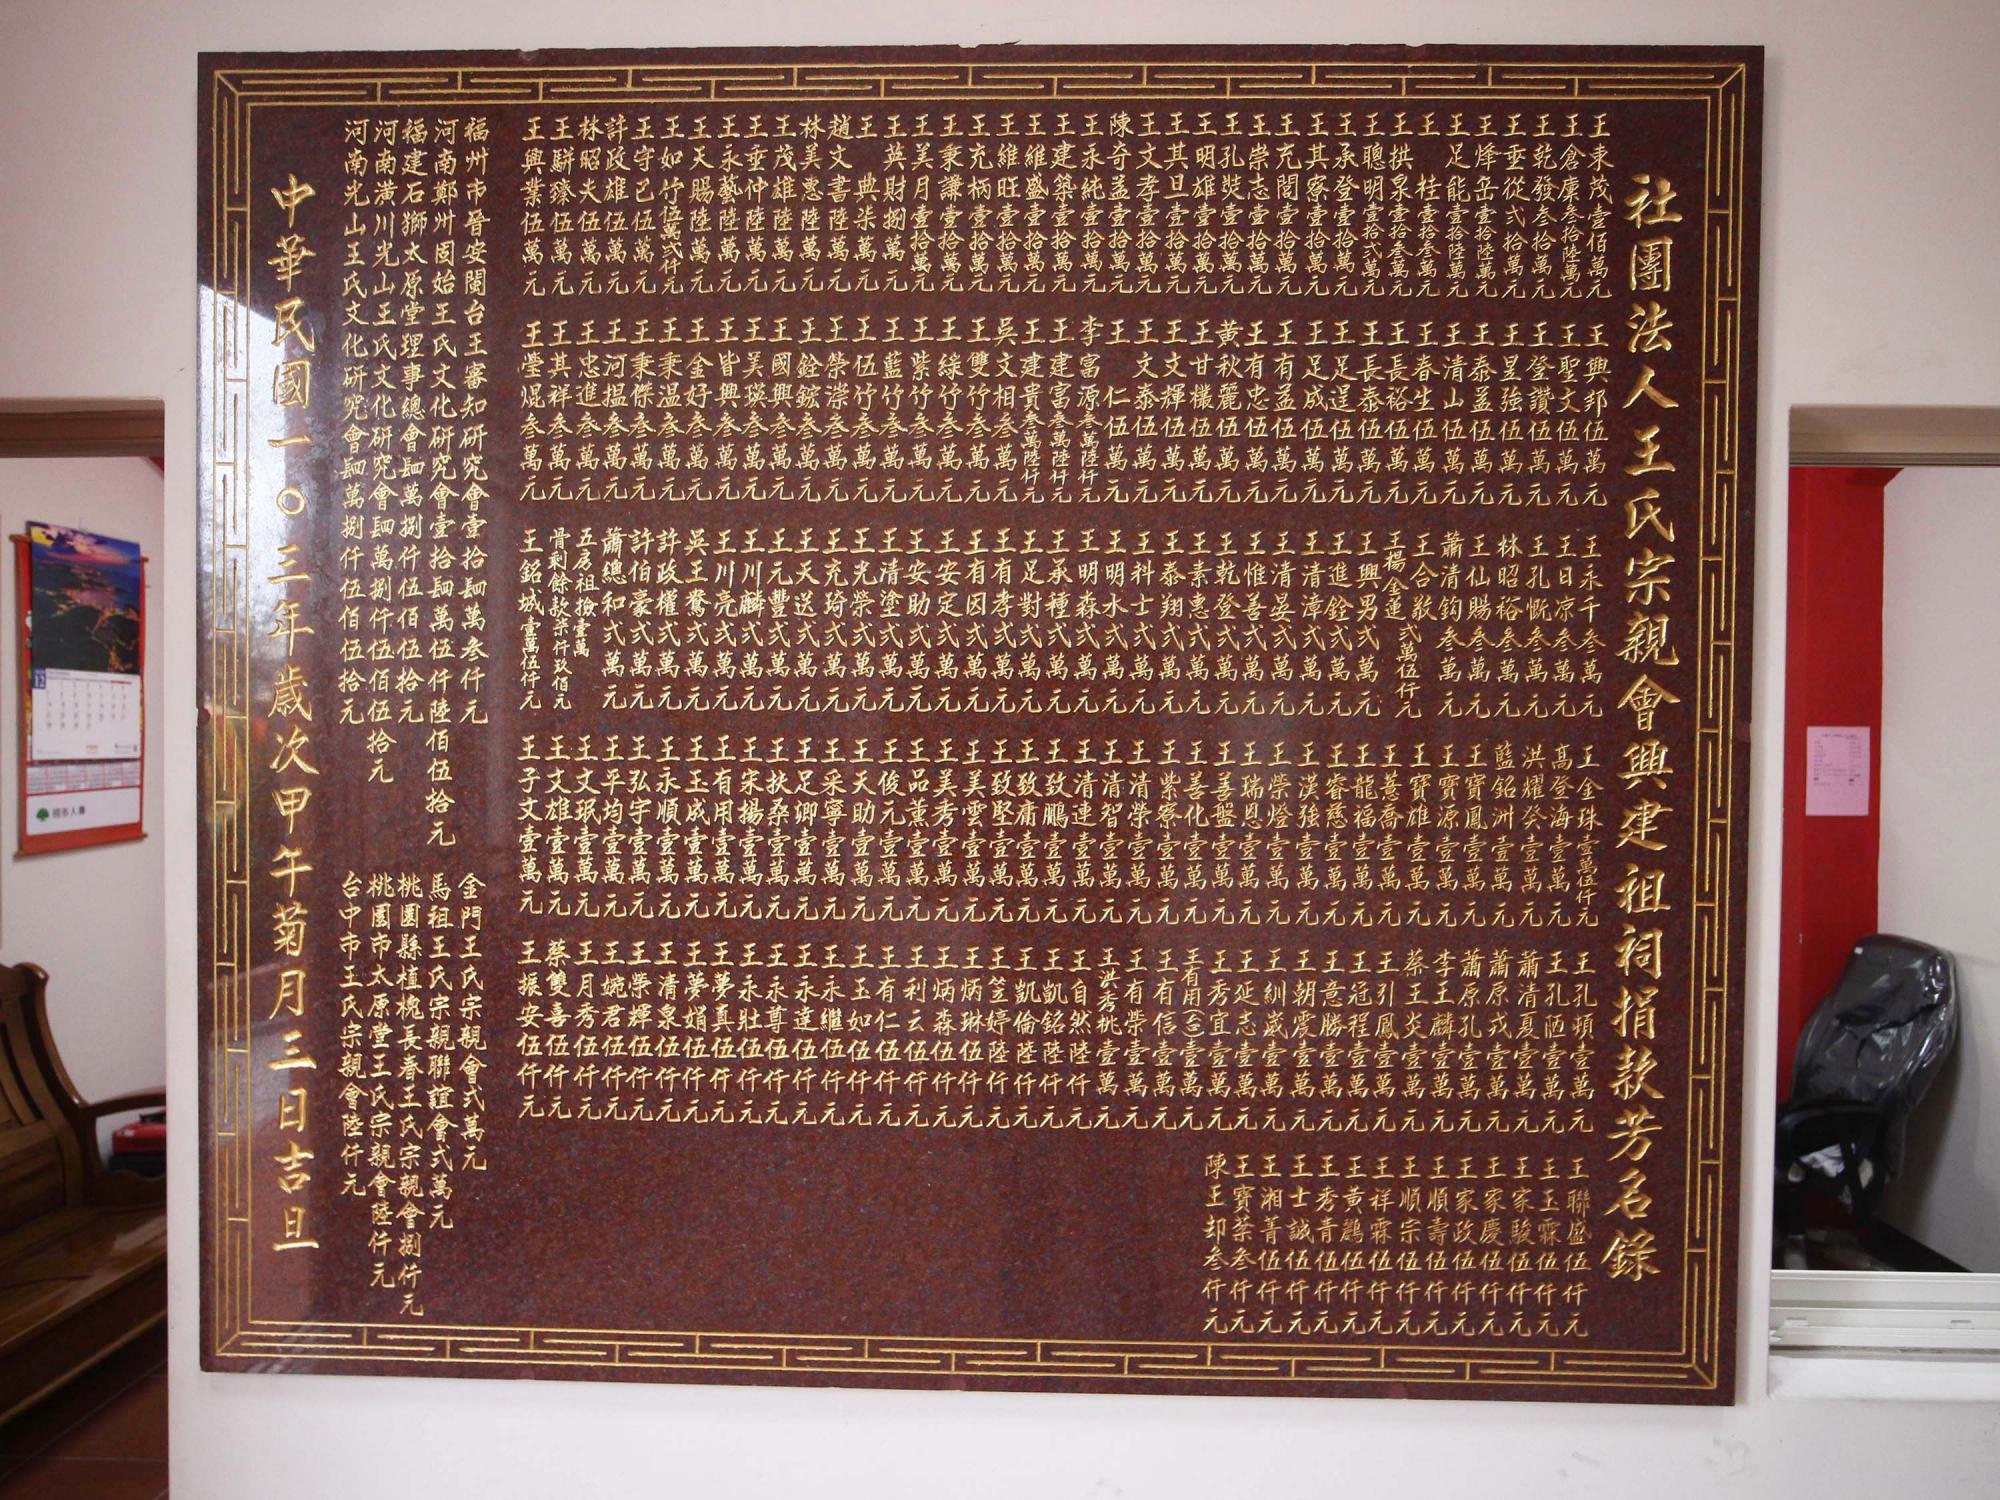 社團法人王氏宗親會興建祖祠捐款芳名錄
王東茂壹佰萬元
王倉廩叁拾陸萬元
王乾發叁拾萬元
王垂從弍拾萬元
王烽岳壹拾陸萬元
王足能壹拾陸萬元
王桂壹拾叁萬元
王拱泉壹拾叁萬元
王聰明壹拾弍萬元
王承登壹拾萬元
王其寮壹拾萬元
王充閣壹拾萬元
王崇志壹拾萬元
王孔奘壹拾萬元
王明雄壹拾萬元
王其旦壹拾萬元
王文孝壹拾萬元
陳奇益壹拾萬元
王永純壹拾萬元
王建築壹拾萬元
王維盛壹拾萬元
王維旺壹拾萬元
王充柄壹拾萬元
王秉謙壹拾萬元
王美月壹拾萬元
王英財捌萬元
王典柒萬元
趙文書陸萬元
林美惠陸萬元
王茂雄陸萬元
王垂仲陸萬元
王永藝陸萬元
王天賜陸萬元
王如竹伍萬弍仟元
王守己伍萬元
許政雄伍萬元
林昭夫伍萬元
王駢臻伍萬元
王興業伍萬元
王興邦伍萬元
王聖文伍萬元
王登讚伍萬元
王昱強伍萬元
王泰益伍萬元
王清山伍萬元
王春生伍萬元
王長裕伍萬元
王長泰伍萬元
王足逞伍萬元
王足成伍萬元
王有益伍萬元
王有忠伍萬元
黃秋麗伍萬元
王甘欉伍萬元
王文輝伍萬元
王文泰伍萬元
王仁伍萬元
李富源叁萬陸仟元
王建富叁萬陸仟元
王建貴叁萬陸仟元
吳文相叁萬元
王雙竹叁萬元
王綠竹叁萬元
王紫竹叁萬元
王藍竹叁萬元
王伍竹叁萬元
王榮崇叁萬元
王銓鋐叁萬元
王國興叁萬元
王美瑛叁萬元
王皆興叁萬元
王金好叁萬元
王秉溫叁萬元
王秉傑叁萬元
王河揾叁萬元
王忠進叁萬元
王其祥叁萬元
王瑩焜叁萬元
王永千叁萬元
王日凉叁萬元
王孔慨叁萬元
林昭裕叁萬元
王仙賜叁萬元
蕭清鈞叁萬元
王合敬
王楊金蓮弍萬伍仟元
王興男弍萬元
王進銓弍萬元
王清漳弍萬元
王清晏弍萬元
王惟善弍萬元
王乾登弍萬元
王素惠弍萬元
王泰翔弍萬元
王科士弍萬元
王明水弍萬元
王明森弍萬元
王承種弍萬元
王足對弍萬元
王有孝弍萬元
王有因弍萬元
王安定弍萬元
王安助弍萬元
王清塗弍萬元
王光榮弍萬元
王充琦弍萬元
王天送弍萬元
王元豐弍萬元
王川麟弍萬元
王川亮弍萬元
吳王鴦弍萬元
許政權弍萬元
許伯豪弍萬元
蕭總和弍萬元
五房祖撿壹萬
骨剩餘款柒仟玖佰元
王銘城壹萬伍仟元
王金珠壹萬伍仟元
高登海壹萬元
洪耀癸壹萬元
藍銘洲壹萬元
王寶鳳壹萬元
王寶源壹萬元
王寶雄壹萬元
王薏喬壹萬元
王龍福壹萬元
王睿慈壹萬元
王漢強壹萬元
王榮燈壹萬元
王瑞恩壹萬元
王善盤壹萬元
王善化壹萬元
王紫寮壹萬元
王清榮壹萬元
王清智壹萬元
王清連壹萬元
王致鵬壹萬元
王致庸壹萬元
王致堅壹萬元
王美雲壹萬元
王美秀壹萬元
王品薰壹萬元
王俊元壹萬元
王天助壹萬元
王采寧壹萬元
王足卿壹萬元
王扶桑壹萬元
王宋揚壹萬元
王有用壹萬元
王玉成壹萬元
王永順壹萬元
王弘宇壹萬元
王平均壹萬元
王文珉壹萬元
王文雄壹萬元
王子文壹萬元
王孔頓壹萬元
王孔陋壹萬元
蕭清夏壹萬元
蕭原戎壹萬元
蕭原孔壹萬元
李王麟壹萬元
蔡王炎壹萬元
王引鳳壹萬元
王冠程壹萬元
王意勝壹萬元
王朝震壹萬元
王紃崴壹萬元
王延志壹萬元
王秀宜壹萬元
王有用(台)壹萬元
王有信壹萬元
王有榮壹萬元
王洪秀桃壹萬元
王自然陸仟元
王凱銘陸仟元
王凱倫陸仟元
王笠婷陸仟元
王炳琳伍仟元
王炳森伍仟元
王利云伍仟元
王有仁伍仟元
王玉如伍仟元
王永繼伍仟元
王永達伍仟元
王永尊伍仟元
王永壯伍仟元
王夢真伍仟元
王夢娟伍仟元
王清泉伍仟元
王榮輝伍仟元
王婉君伍仟元
王月秀伍仟元
蔡雙喜伍仟元
王振安伍仟元
王聯盛伍仟元
王玉霖伍仟元
王家駿伍仟元
王家慶伍仟元
王家政伍仟元
王順壽伍仟元
王順宗伍仟元
王祥霖伍仟元
王黃鸝伍仟元
王秀青伍仟元
王士誠伍仟元
王湘菁伍仟元
王寶葉叁仟元
陳王却叁仟元
福州市晉安閩台王審知研究會壹拾肆萬叁仟元
河南鄭州固始王氏文化研究會壹拾肆萬伍仟陸佰伍拾元
福建石獅太原堂理事總會肆萬捌仟伍佰伍拾元
河南潢川光山王氏文化研究會肆萬捌仟伍佰伍拾元
河南光山王氏文化研究會肆萬捌仟伍佰伍拾元
金門王氏宗親會弍萬元
馬祖王氏宗親聯誼會弍萬元
桃園縣植槐長春王氏宗親會捌仟元
桃園市太原堂王氏宗親會陸仟元
台中市王氏宗親會陸仟元
中華民國一○三年歲次甲午菊月三日吉旦
12
國泰人壽